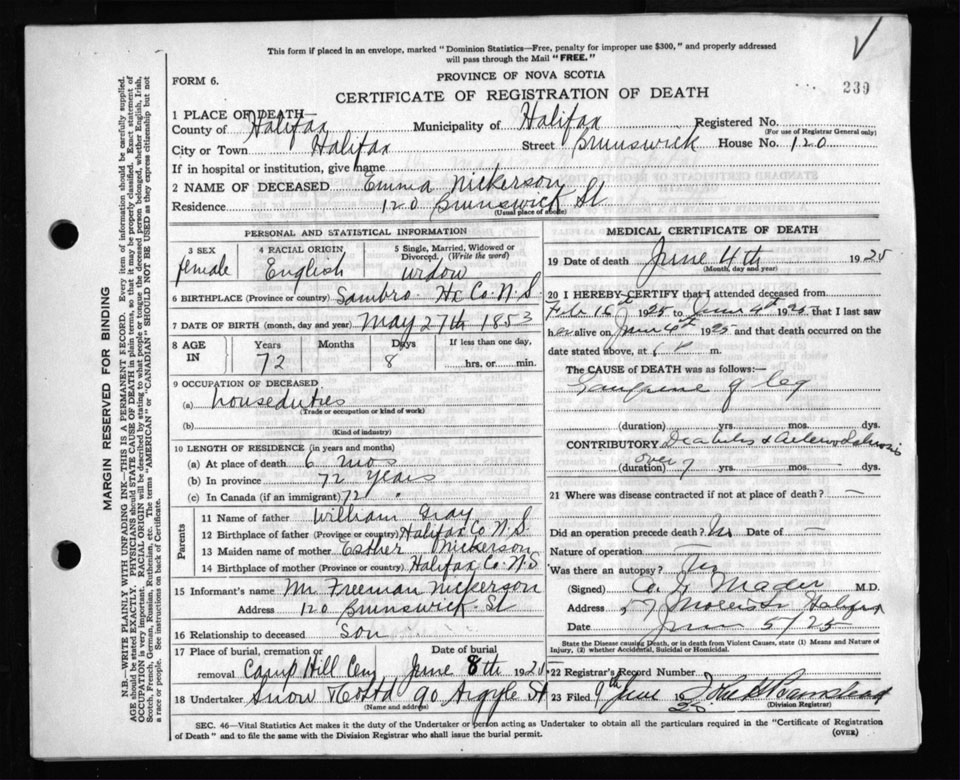 This form if placed in an envelope, marked "Dominion Statistics—Free, penalty for improper use $300," and properly addressed
will pass through the Mail "FREE."
239
FORM 6.
PROVINCE OF NOVA SCOTIA
CERTIFICATE OF REGISTRATION OF DEATH
1 PLACE OF DEATH
County of Halifax Municipality of Halifax Registered No.
(For use of Registrar General only)
City or Town Halifax Street Brunswick House No. 120
If in hospital or institution, give name
2 NAME OF DECEASED Emma Nickerson
Residence 120 Brunswick St
(Usual place of abode)
PERSONAL AND STATISTICAL INFORMATION
3 SEX 4 RACIAL ORIGIN 5 Single, Married, Widowed or
Divorced. (Write the word)
female English widow
6 BIRTHPLACE (Province or country) Sambro Hx Co. N.S.
7 DATE OF BIRTH (month, day and year) May 27th 1853
8 AGE IN Years Months Days If less than one day,
72 8 hrs. or min.
9 OCCUPATION OF DECEASED
(a) houseduties
(Trade or occupation or kind of work)
(b)
(Kind of industry)
10 LENGTH OF RESIDENCE (in years and months)
(a) At place of death 6 mos
(b) In province 72 years
(c) In Canada (if an immigrant) 72 "
Parents
11 Name of father William Gray
12 Birthplace of father (Province or country) Halifax Co N.S.
13 Maiden name of mother Esther Nickerson
14 Birthplace of mother (Province or country) Halifax Co. N.S
15 Informant's name Mr Freeman Nickerson
Address 120 Brunswick St
16 Relationship to deceased Son
17 Place of burial, cremation or Date of burial
removal Camp Hill Cem June 8th 1925
18 Undertaker Snow & Co Ltd 90 Argyle St
(Name and address)
MEDICAL CERTIFICATE OF DEATH
19 Date of death June 4th 1925
(Month, day and year)
20 I HEREBY CERTIFY that I attended deceased from
Feb 16th 1925 to June 4th 1925 that I last saw
her alive on June 4th 1925 and that death occurred on the
date stated above, at P m.
The CAUSE of DEATH was as follows:—
Gangrene of leg
(duration) yrs. mos. dys.
CONTRIBUTORY Diabetes & Arteriosclerosis
(duration) over 7 yrs. mos. dys.
21 Where was disease contracted if not at place of death? —
Did an operation precede death? No Date of —
Nature of operation —
Was there an autopsy?
(Signed) Mader M.D.
Address 57 Morris St Halifax
Date June 5/25
State the Disease causing Death, or in death from Violent Causes, state (1) Means and Nature of
Injury, (2) whether Accidental, Suicidal or Homicidal.
22 Registrar's Record Number
23 Filed 9th June 1925
(Division Registrar)
SEC. 46—Vital Statistics Act makes it the duty of the Undertaker or person acting as Undertaker to obtain all the particulars required in the "Certificate of Registration
of Death" and to file the same with the Division Registrar who shall issue the burial permit.
(OVER)
MARGIN RESERVED FOR BINDING
N.B.—WRITE PLAINLY WITH UNFADING INK—THIS IS A PERMANENT RECORD. Every item of information should be carefully supplied.
AGE should be stated EXACTLY. PHYSICIANS should STATE CAUSE OF DEATH in plain terms, so that it may be properly classified. Exact statement of
OCCUPATION is very important. RACIAL ORIGIN will be described by stating to what people or tongue the deceased person belonged, whether English, Irish,
Scotch, French, German, Russian, Ruthenian, etc. The terms "AMERICAN" or "CANADIAN" SHOULD NOT BE USED as they express citizenship but not
a race or people. See instructions on back of Certificate.